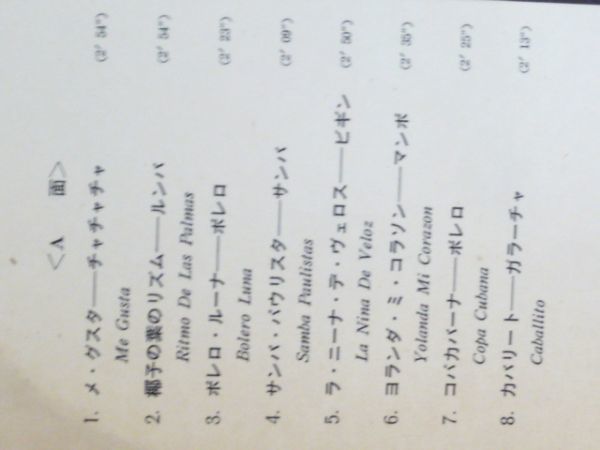 ＜A　面＞
1. メ・グスタ――チャチャチャ (2′ 54″)
Me Gusta
2. 椰子の葉のリズム――ルンバ (2′ 54″)
Ritmo De Las Palmas
3. ボレロ・ルーナ――ボレロ (2′ 23″)
Bolero Luna
4. サンバ・パウリスタ――サンバ (2′ 09″)
Samba Paulistas
5. ラ・ニーナ・デ・ヴェロス――ビギン (2′ 50″)
La Nina De Veloz
6. ヨランダ・ミ・コラソン――マンボ (2′ 35″)
Yolanda Mi Corazon
7. コパカバーナ――ボレロ (2′ 25″)
Copa Cubana
8. カバリート――ガラーチャ (2′ 13″)
Caballito